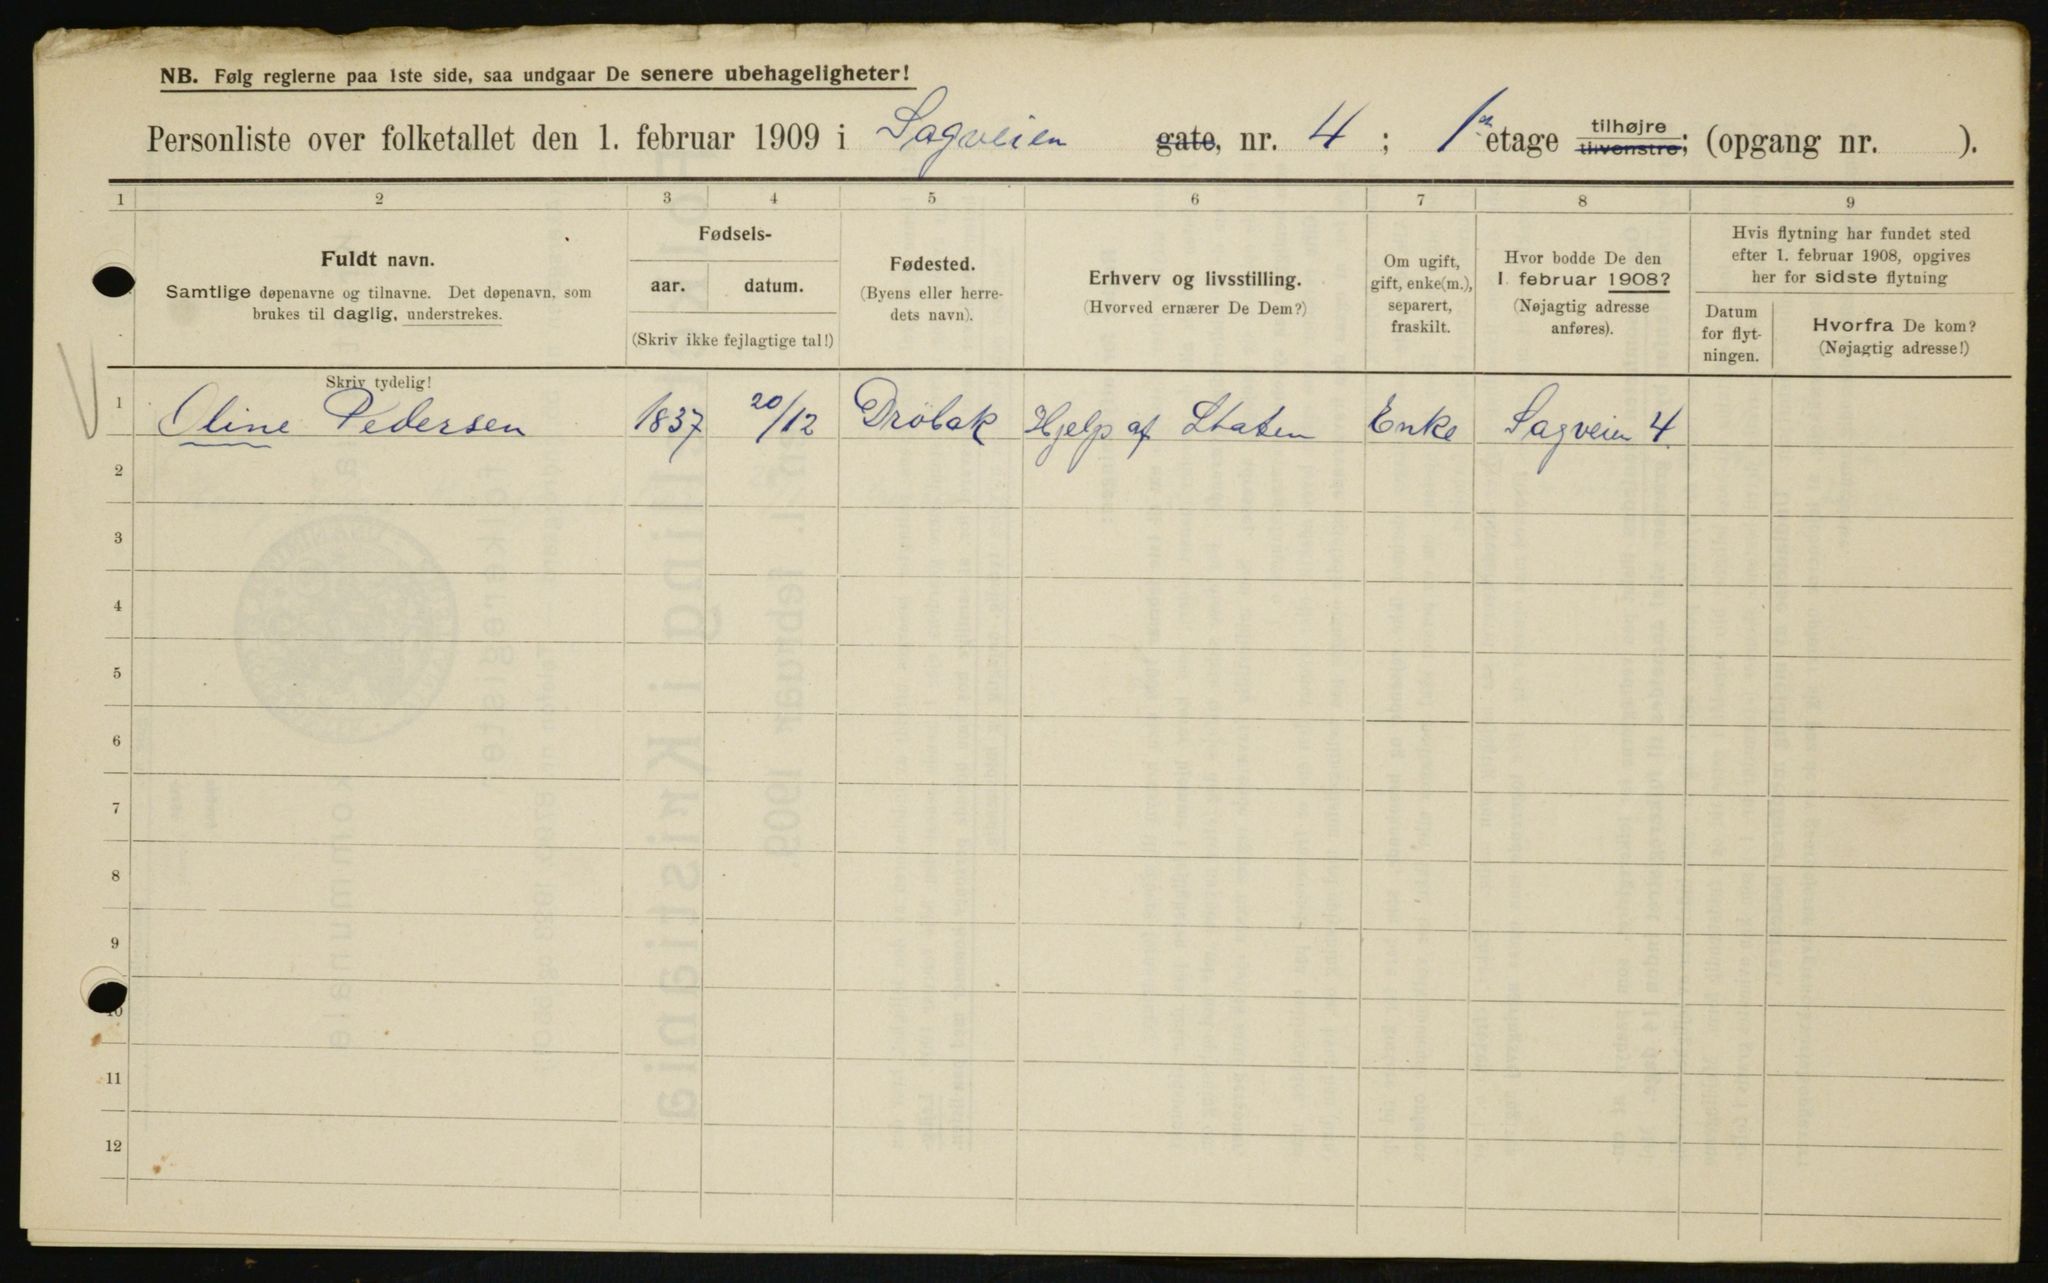 NB. Følg reglerne paa 1ste side, saa undgaar De senere ubehageligheter!
Personliste over folketallet den 1. februar 1909 i Sagveien gate, nr. 4; 1ste etage tilhøjre tilvenstre; (opgang nr. ).
1 2 3 4 5 6 7 8 9
Fuldt navn.
Samtlige døpenavne og tilnavne. Det døpenavn, som
brukes til daglig, understrekes.
Skriv tydelig!
Fødsels-
aar. datum.
(Skriv ikke fejlagtige tal!)
Fødested.
(Byens eller herre-
dets navn).
Erhverv og livsstilling.
(Hvorved ernærer De Dem?)
Om ugift,
gift, enke(m.),
separert,
fraskilt.
Hvor bodde De den
1. februar 1908?
(Nøjagtig adresse
anføres).
Hvis flytning har fundet sted
efter 1. februar 1908, opgives
her for sidste flytning
Datum
for flyt-
ningen.
Hvorfra De kom?
(Nøjagtig adresse!)
1 Oline Pedersen 1837 20/12 Drøbak Hjelp af Staten Enke Sagveien 4
2
3
4
5
6
7
8
9
10
11
12